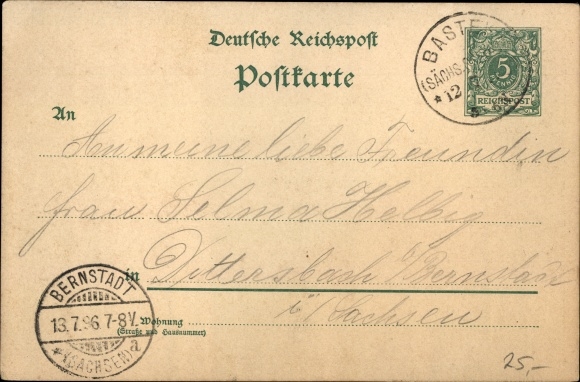 Deutsche Reichspost
Postkarte
BASTEI
(SÄCHS.
* 12
5
REICHSPOST
An
An meine liebe Freundin
Frau Selma Helbig
in Dittersbach b/Bernstadt
i/Sachsen
Wohnung
(Straße und Hausnummer)
BERNSTADT
13.7.96.7-8V.
*(SACHSEN)a
25,-